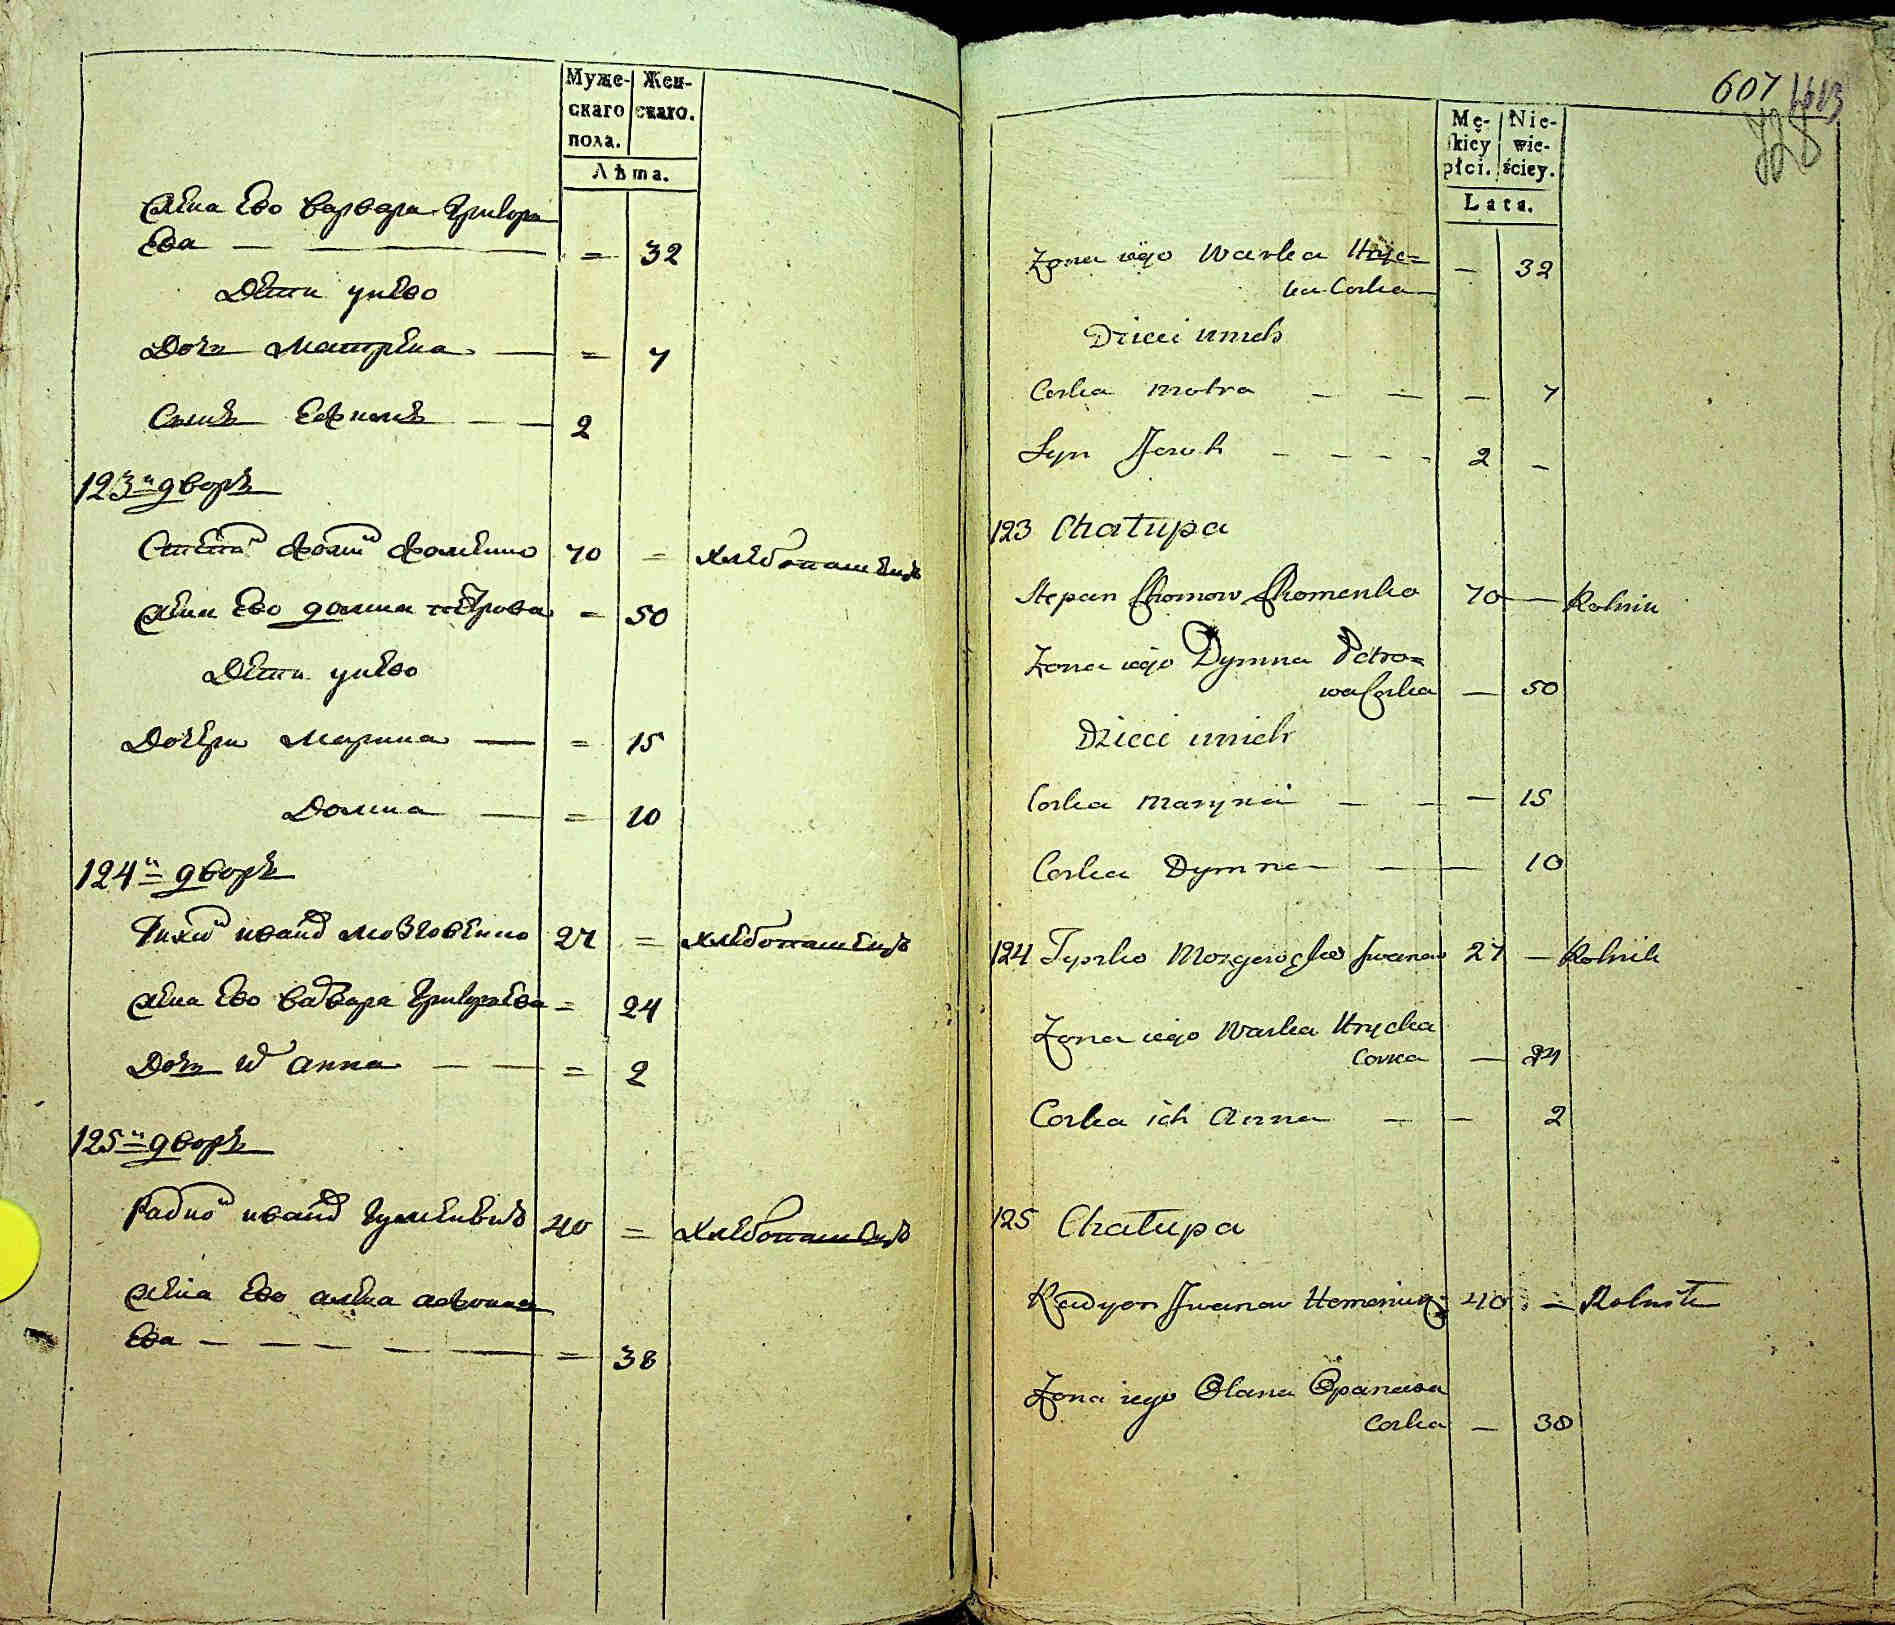 Муже-
скаго
пола.
Жен-
скаго.
Лѣта.
жена Ево варвара Григорь
Ева — — = 32
Дети унево
Дочь Матрена — = 7
Сынъ Ефимъ — — 2
123й дворъ
Степанъ Фоминъ Фоменко 70 = хлебопашецъ
жена Ево домна петрова = 50
Дети унево
Дочери Марина — = 15
Домна — = 10
124й дворъ
Тихонъ ивановъ Мозговенко 27 = хлебопашецъ
жена Ево варвара Григорьева = 24
Дочь их анна — — = 2
125й дворъ
Радионъ ивановъ 40 = хлебопашецъ
жена Ево алена афонась
Ева — — — — — = 38
607
728
Mę-
skiey
płci.
Nie-
wie-
ściey.
Lata.
Zona iego Warka Hryc=
ka Corka — 32
Dzieci unich
Corka Motra — — — 7
Syn — — — — 2 —
123 Chałupa
Stepan Chomow Chomenko 70 — Rolnik
Zona iego Dymna Petro=
wa Corka — 50
Dzieci unich
Corka Maryna — — — 15
Corka Dymna — — 10
124 Iwanow 27 — Rolnik
Zona iego Warka Hrycka
Corka — 24
Corka ich Anna — — 2
125 Chałupa
Radyon Iwanow 40 — Rolnik
Zona iego Olana Opanasa
Corka — 38